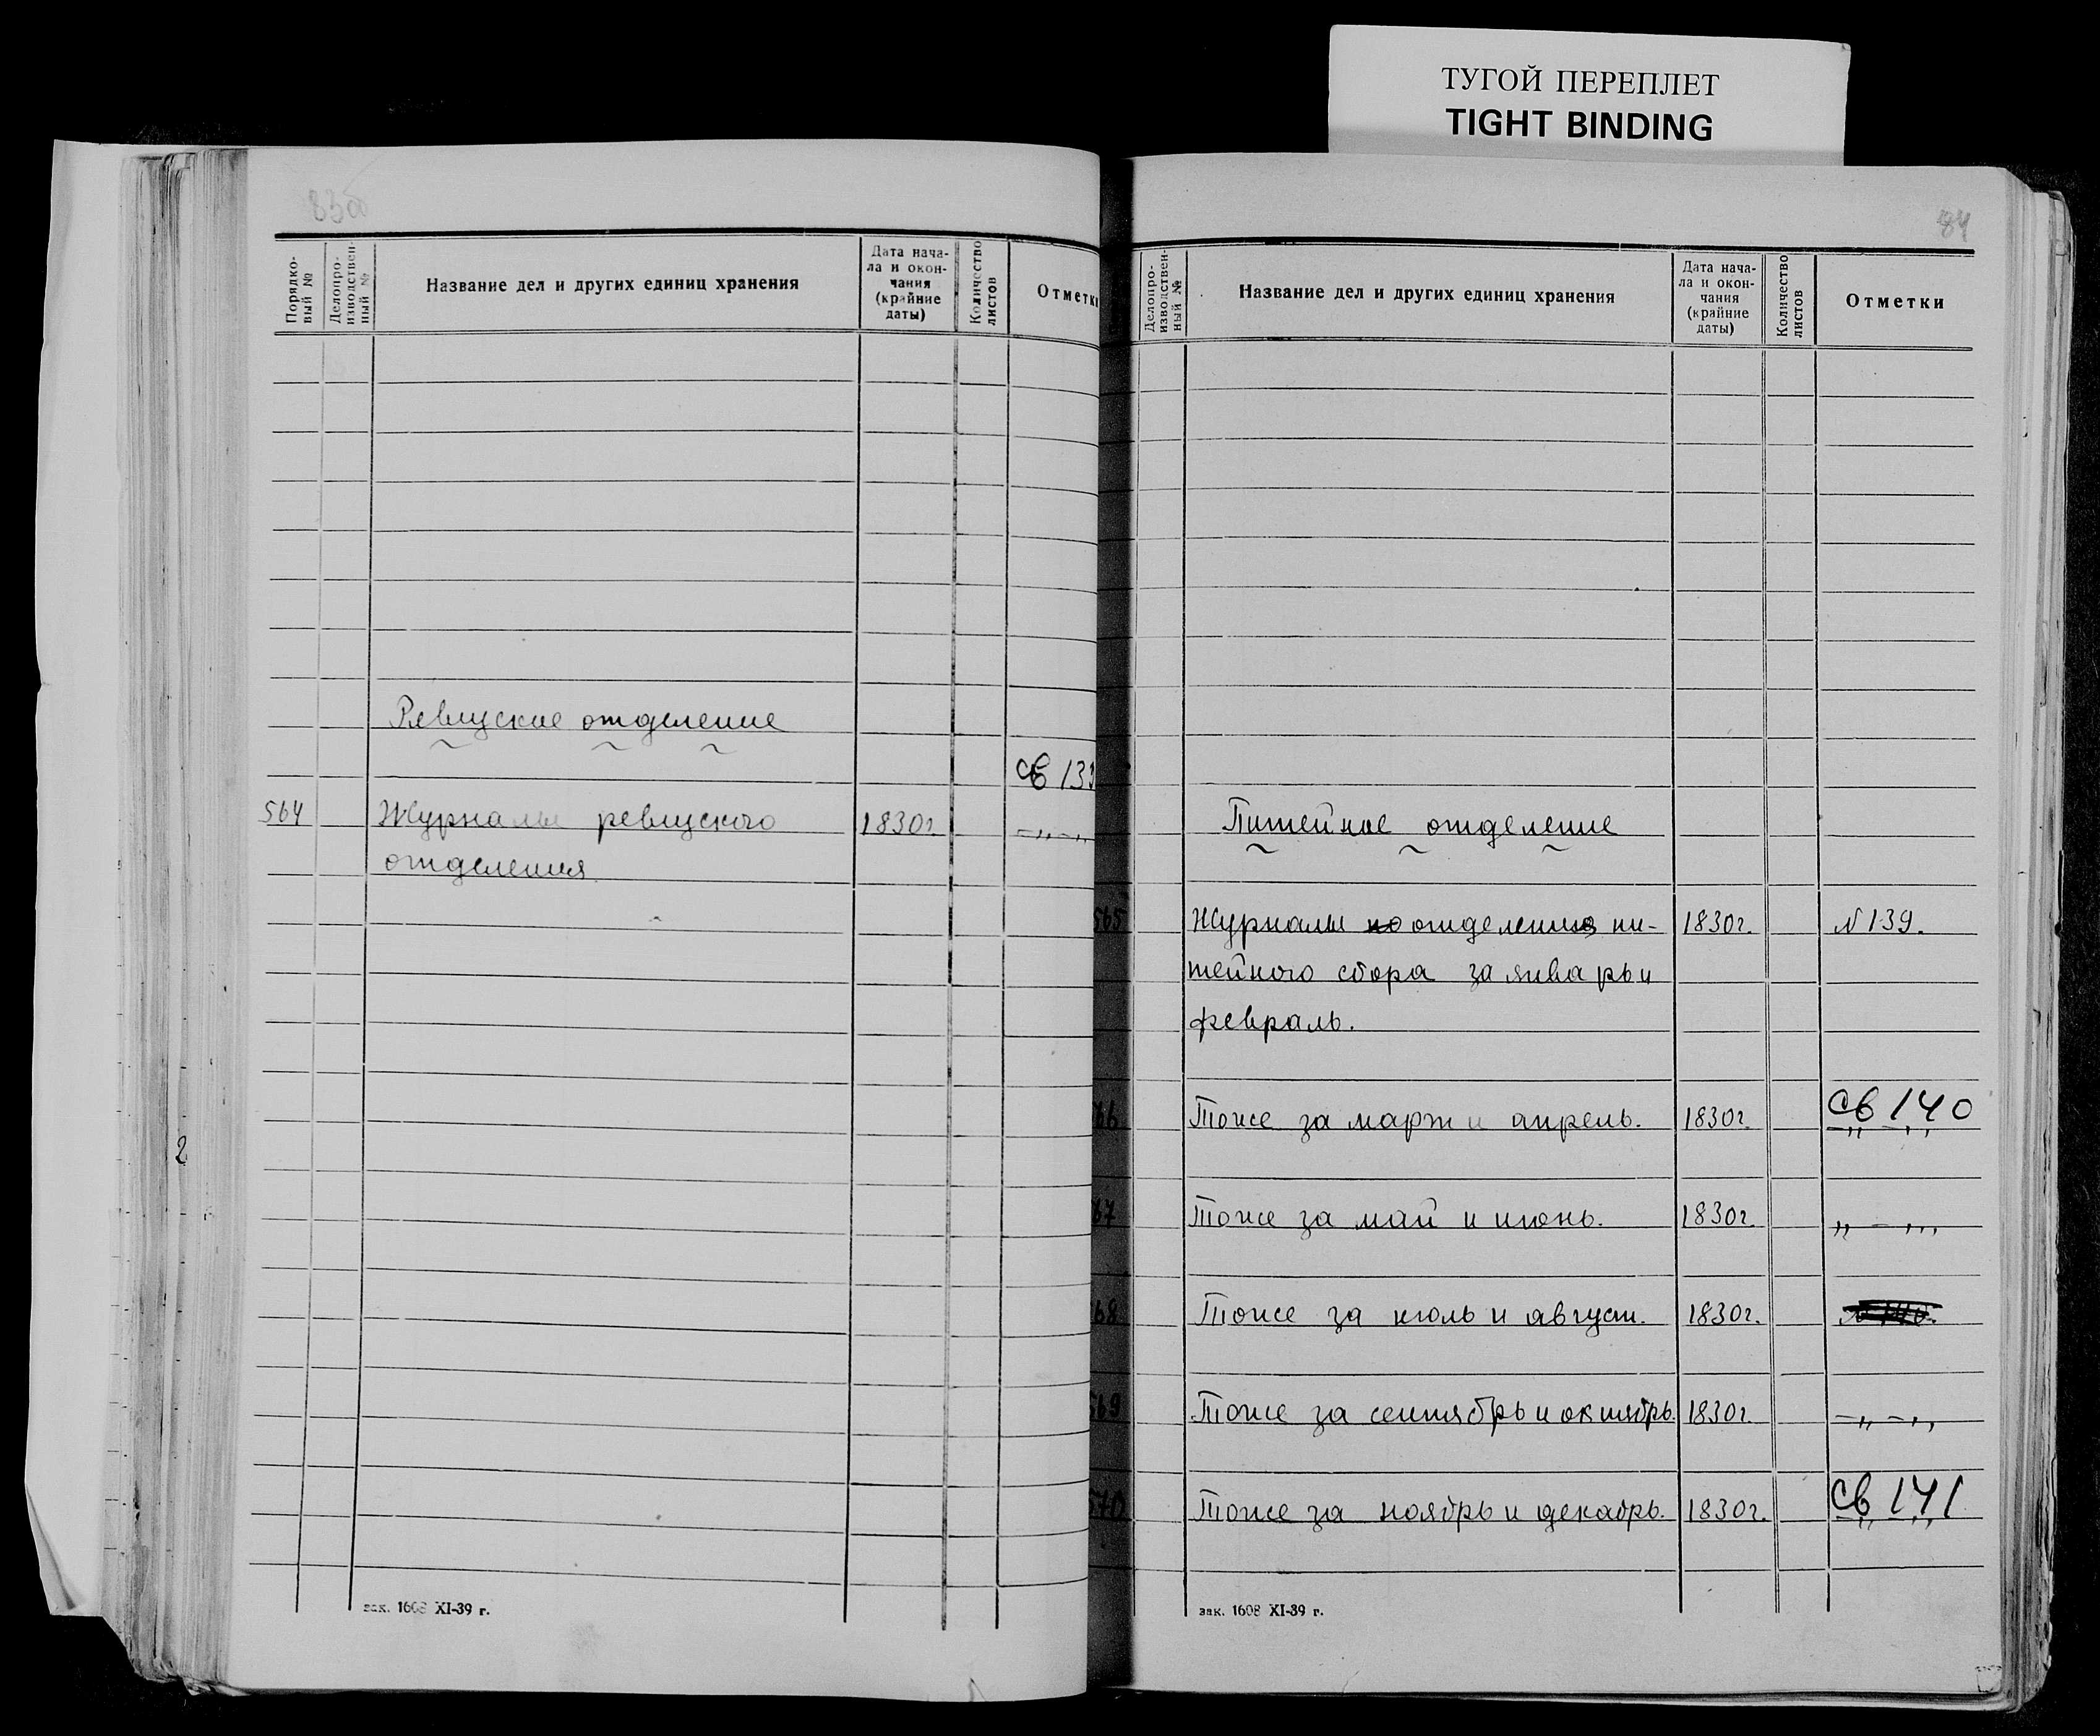 ТУГОЙ ПЕРЕПЛЕТ
TIGHT BINDING
83об
Порядко-
вый №
Делопро-
изводствен-
ный №
Название дел и других единиц хранения
Дата нача-
ла и окон-
чания
(крайние
даты)
Количество
листов
Отметки
Ревизское отделение
св 133
564 Журналы ревизского 1830г. -„-„
отделения
зак. 1608 XI-39 г.
2
84
Делопро-
изводствен-
ный №
Название дел и других единиц хранения
Дата нача-
ла и окон-
чания
(крайние
даты)
Количество
листов
Отметки
Питейное отделение
565 Журналы по отделению пи- 1830г. N 139.
тейного сбора за январь и
февраль.
св 140
66 Тоже за март и апрель. 1830г. -„-„
67 Тоже за май и июнь. 1830г. „-„
68 Тоже за июль и август. 1830г.
569 Тоже за сентябрь и октябрь. 1830г. -„-„
св 141
570 Тоже за ноябрь и декабрь. 1830г. -„-„
зак. 1608 XI-39 г.